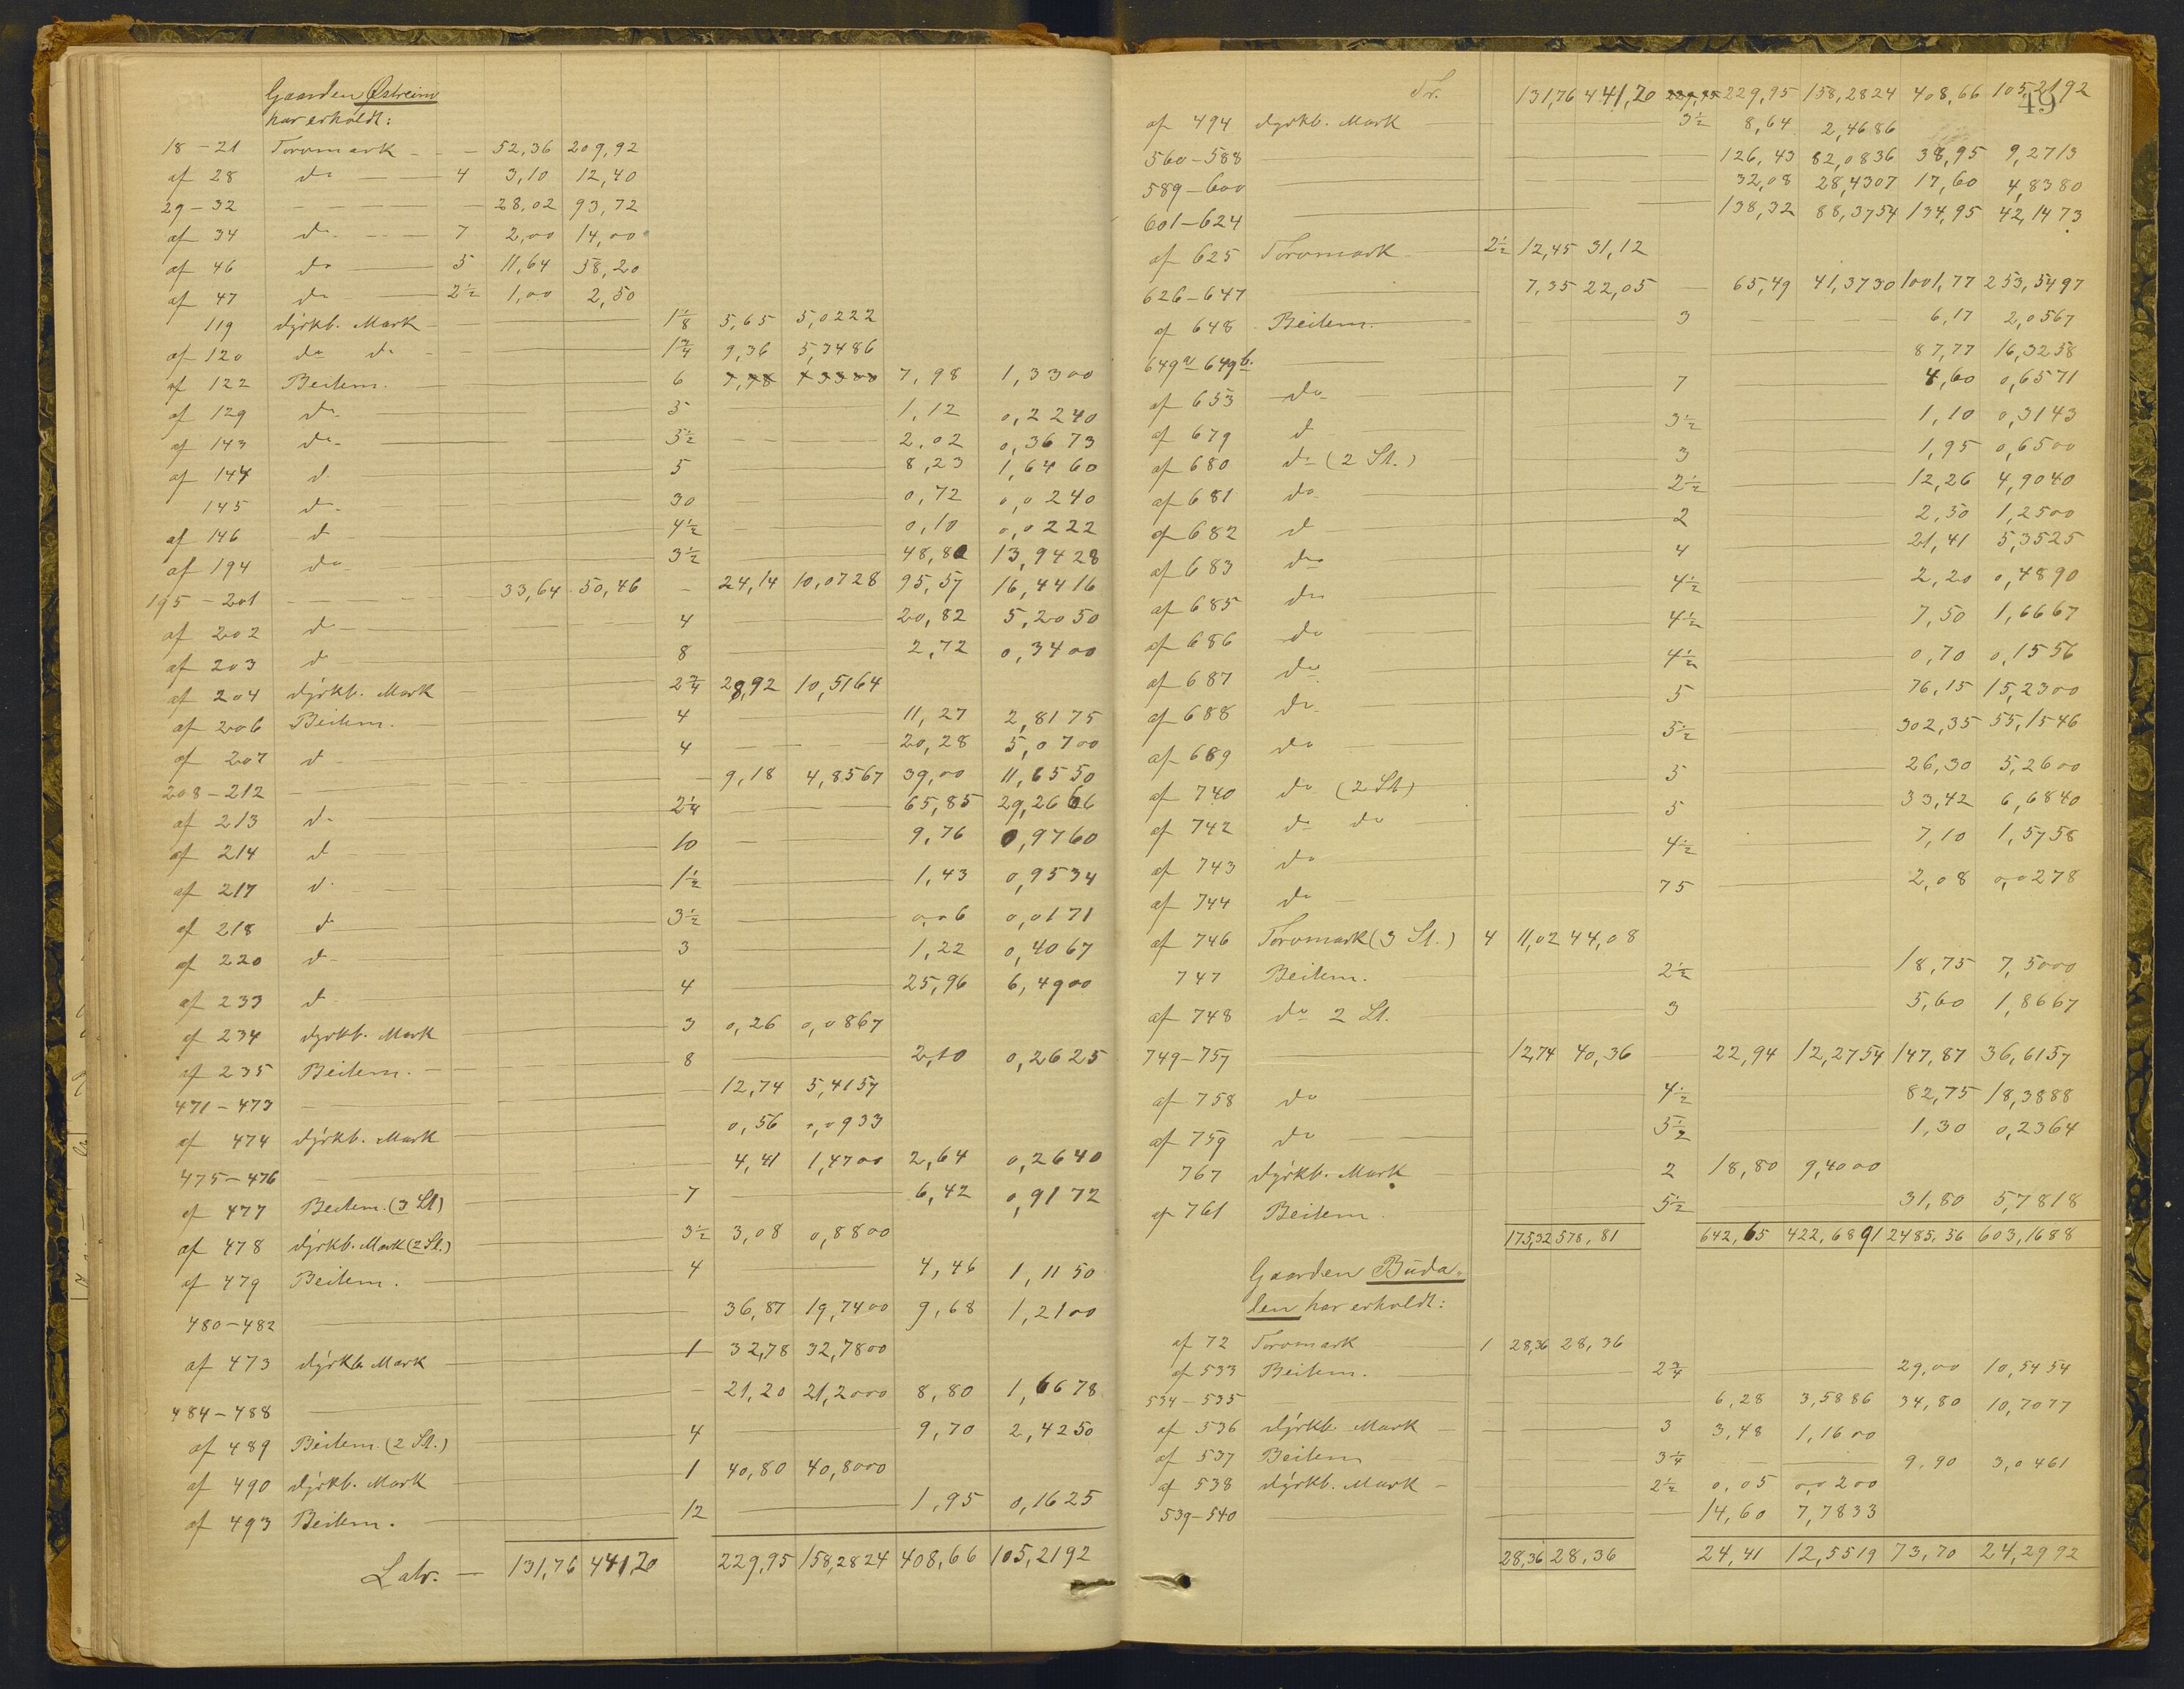 Gaarden Østreim
har erholdt:
18-21 Torvmark - - 52,36 209,92
af 28 do — 4 3,10 12,40
29-32 — 28,02 93,72
af 34 do — 7 2,00 14,00
af 46 do — 5 11,64 58,20
af 47 do — 2½ 1,00 2,50
119 dyrkb. Mark — 1⅛ 5,65 5,0222
af 120 do do — 1¾ 9,36 5,3486
af 122 Beitem. — 6 7,98 1,3300 7,98 1,3300
af 129 do — 5 1,12 0,2240
af 143 do — 5½ 2,02 0,3673
af 144 do — 5 8,23 1,6460
145 do — 30 0,72 0,0240
af 146 do — 4½ 0,10 0,0222
af 194 do — 3½ 48,80 13,9428
195-201 — 33,64 50,46 — 24,14 10,0728 95,57 16,4416
af 202 do — 4 20,82 5,2050
af 203 do — 8 2,72 0,3400
af 204 dyrkb. Mark — 2¾ 28,92 10,5164
af 206 Beitem. — 4 11,27 2,8175
af 207 do — 4 20,28 5,0700
208-212 — 9,18 4,8567 39,00 11,6550
af 213 do — 2¼ 65,85 29,2666
af 214 do — 10 9,76 0,9760
af 217 do — 1½ 1,43 0,9534
af 218 do — 3½ 0,06 0,0171
af 220 do — 3 1,22 0,4067
af 233 do — 4 25,96 6,4900
af 234 dyrkb. Mark — 3 0,26 0,0867
af 235 Beitem. — 8 2,10 0,2625
471-473 — 12,74 5,4157
af 474 dyrkb. Mark — 0,56 0,0933
475-476 — 4,41 1,4700 2,64 0,2640
af 477 Beitem. (3 St) — 7 6,42 0,9172
af 478 dyrkb. Mark (2 St.) — 3½ 3,08 0,8800
af 479 Beitem. — 4 4,46 1,1150
480-482 — 36,87 19,7400 9,68 1,2100
af 473 dyrkb Mark — 1 32,78 32,7800
484-488 — 21,20 21,2000 8,80 1,6678
af 489 Beitem. (2 St.) — 4 9,70 2,4250
af 490 dyrkb. Mark — 1 40,80 40,8000
af 493 Beitem. — 12 1,95 0,1625
Latr. — 131,76 441,20 229,95 158,2824 408,66 105,2192
49
Tr. 131,76 441,20 229,95 229,95 158,2824 408,66 105,2192
af 494 dyrkb. Mark — 3½ 8,64 2,4686
560-588 — 126,43 82,0836 38,95 9,2713
589-600 — 32,08 28,4307 17,60 4,8380
601-624 — 138,32 88,3754 134,95 42,1473
af 625 Torvmark — 2½ 12,45 31,12
626-647 — 7,35 22,05 — 65,49 41,3730 1001,77 253,5497
af 648 Beitem. — 3 6,17 2,0567
649a 649b. — 87,77 16,3258
af 653 do — 7 4,60 0,6571
af 679 do — 3½ 1,10 0,3143
af 680 do (2 St.) — 3 1,95 0,6500
af 681 do — 2½ 12,26 4,9040
af 682 do — 2 2,50 1,2500
af 683 do — 4 21,41 5,3525
af 685 do — 4½ 2,20 0,4890
af 686 do — 4½ 7,50 1,6667
af 687 do — 4½ 0,70 0,1556
af 688 do — 5 76,15 15,2300
af 689 do — 5½ 302,35 55,1546
af 740 do (2 St) — 5 26,30 5,2600
af 742 do do — 5 33,42 6,6840
af 743 do — 4½ 7,10 1,5758
af 744 do — 75 2,08 0,0278
af 746 Torvmark (3 St.) 4 11,02 44,08
747 Beitem. — 2½ 18,75 7,5000
af 748 do 2 St. — 3 5,60 1,8667
749-757 — 12,74 40,36 22,94 12,2754 147,87 36,6157
af 758 do — 4½ 82,75 18,3888
af 759 do — 5½ 1,30 0,2364
767 dyrkb. Mark — 2 18,80 9,4000
af 761 Beitem — 5½ 31,80 5,7818
175,32 578,81 642,65 422,6891 2485,56 603,1688
Gaarden Buda-
len har erholdt:
af 72 Torvmark — 1 28,36 28,36
af 533 Beitem. — 2¾ 29,00 10,5454
534-535 — 6,28 3,5886 34,80 10,7077
af 536 dyrkb. Mark — 3 3,48 1,1600
af 537 Beitem — 3¼ 9,90 3,0461
af 538 dyrkb. Mark — 2½ 0,05 0,0200
539-540 — 14,60 7,7833
28,36 28,36 24,41 12,5519 73,70 24,2992